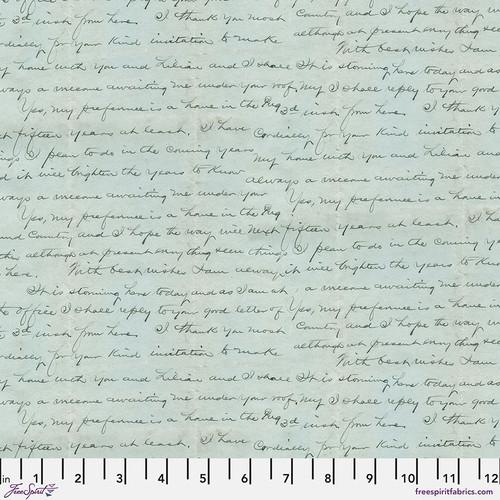 3d inst from here. I thank you most Country, and I hope the way will
cordially for your kind invitation to make although at present everything seems
With best wishes I am
my home with you and Lilian and I shall It is storming here today and as
always a welcome awaiting me under your roof. My I shall reply to your good
Yes, my preference is a home in the 3d inst from here. I thank
next fifteen years at least. I have Cordially for your kind invitation to
things I plan to do in the coming years my home with you and Lilian and
and it will brighten the years to know always a welcome awaiting me under
always a welcome awaiting me under your Yes, my preference is a home in
Yes, my preference is a home in the next fifteen years at least. I
and Country, and I hope the way will things I plan to do in the coming
although at present everything seems it will brighten the years to know
here. With best wishes I am always a welcome awaiting me under
It is storming here today and as I am at Yes, my preference is a home in
the office I shall reply to your good letter of
3d inst from here. I thank you most Country, and I hope the way will
cordially for your kind invitation to make although at present everything seems
With best wishes I am
my home with you and Lilian and I shall It is storming here today and as
always a welcome awaiting me under your roof. My I shall reply to your good
Yes, my preference is a home in the 3d inst from here. I thank
next fifteen years at least. I have Cordially for your kind invitation to
in 1 2 3 4 5 6 7 8 9 10 11 12
FreeSpirit freespiritfabrics.com